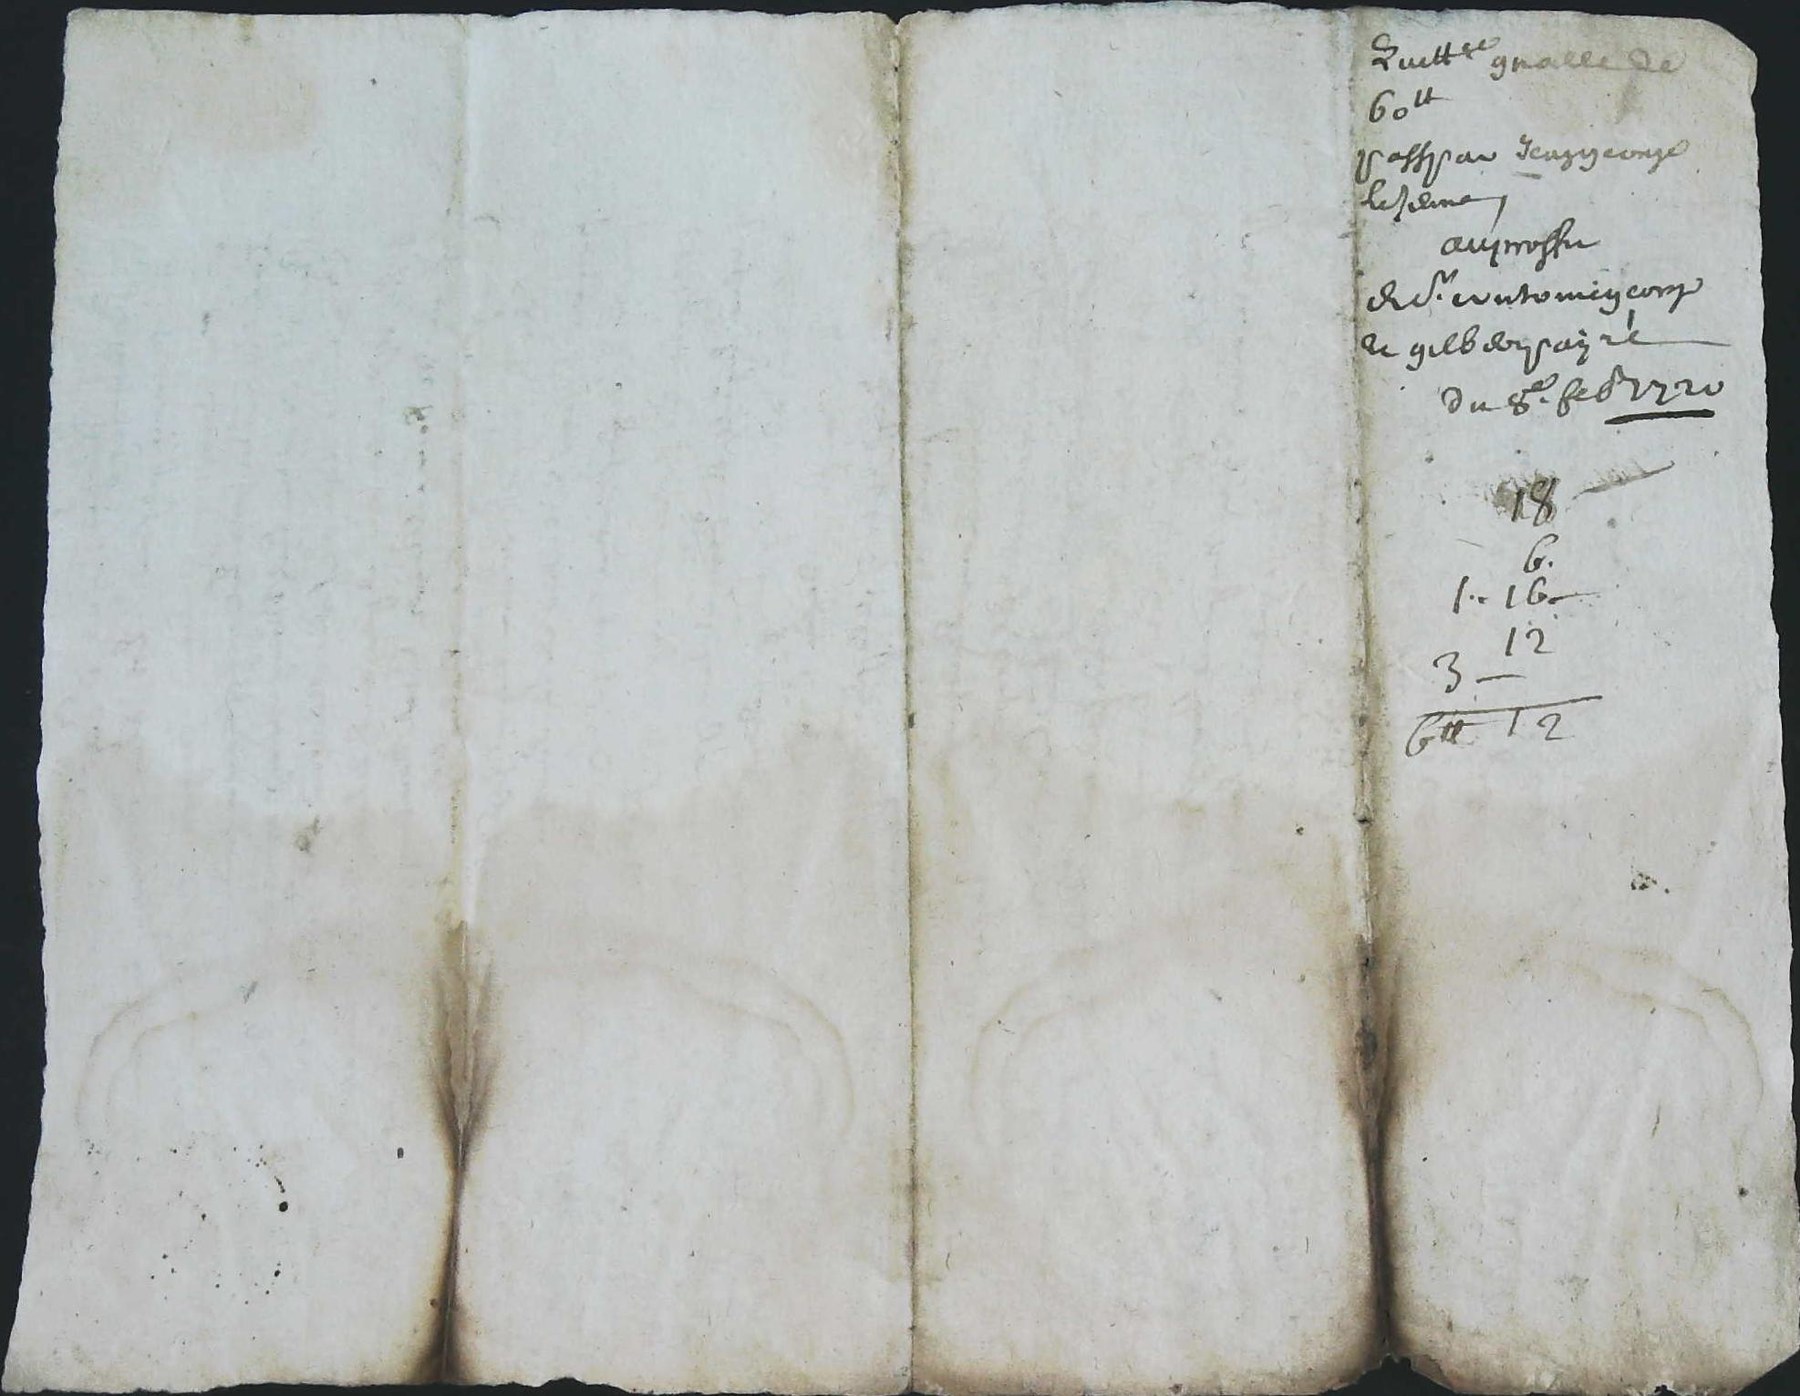 Quittce gnalle de
60tt
pass par Jean george
le Jeune
au proffit
de Sr. george
et gilbert
du 8e. febr 1720
18
6.
1 .. 16 -
12
3 -
6tt 12